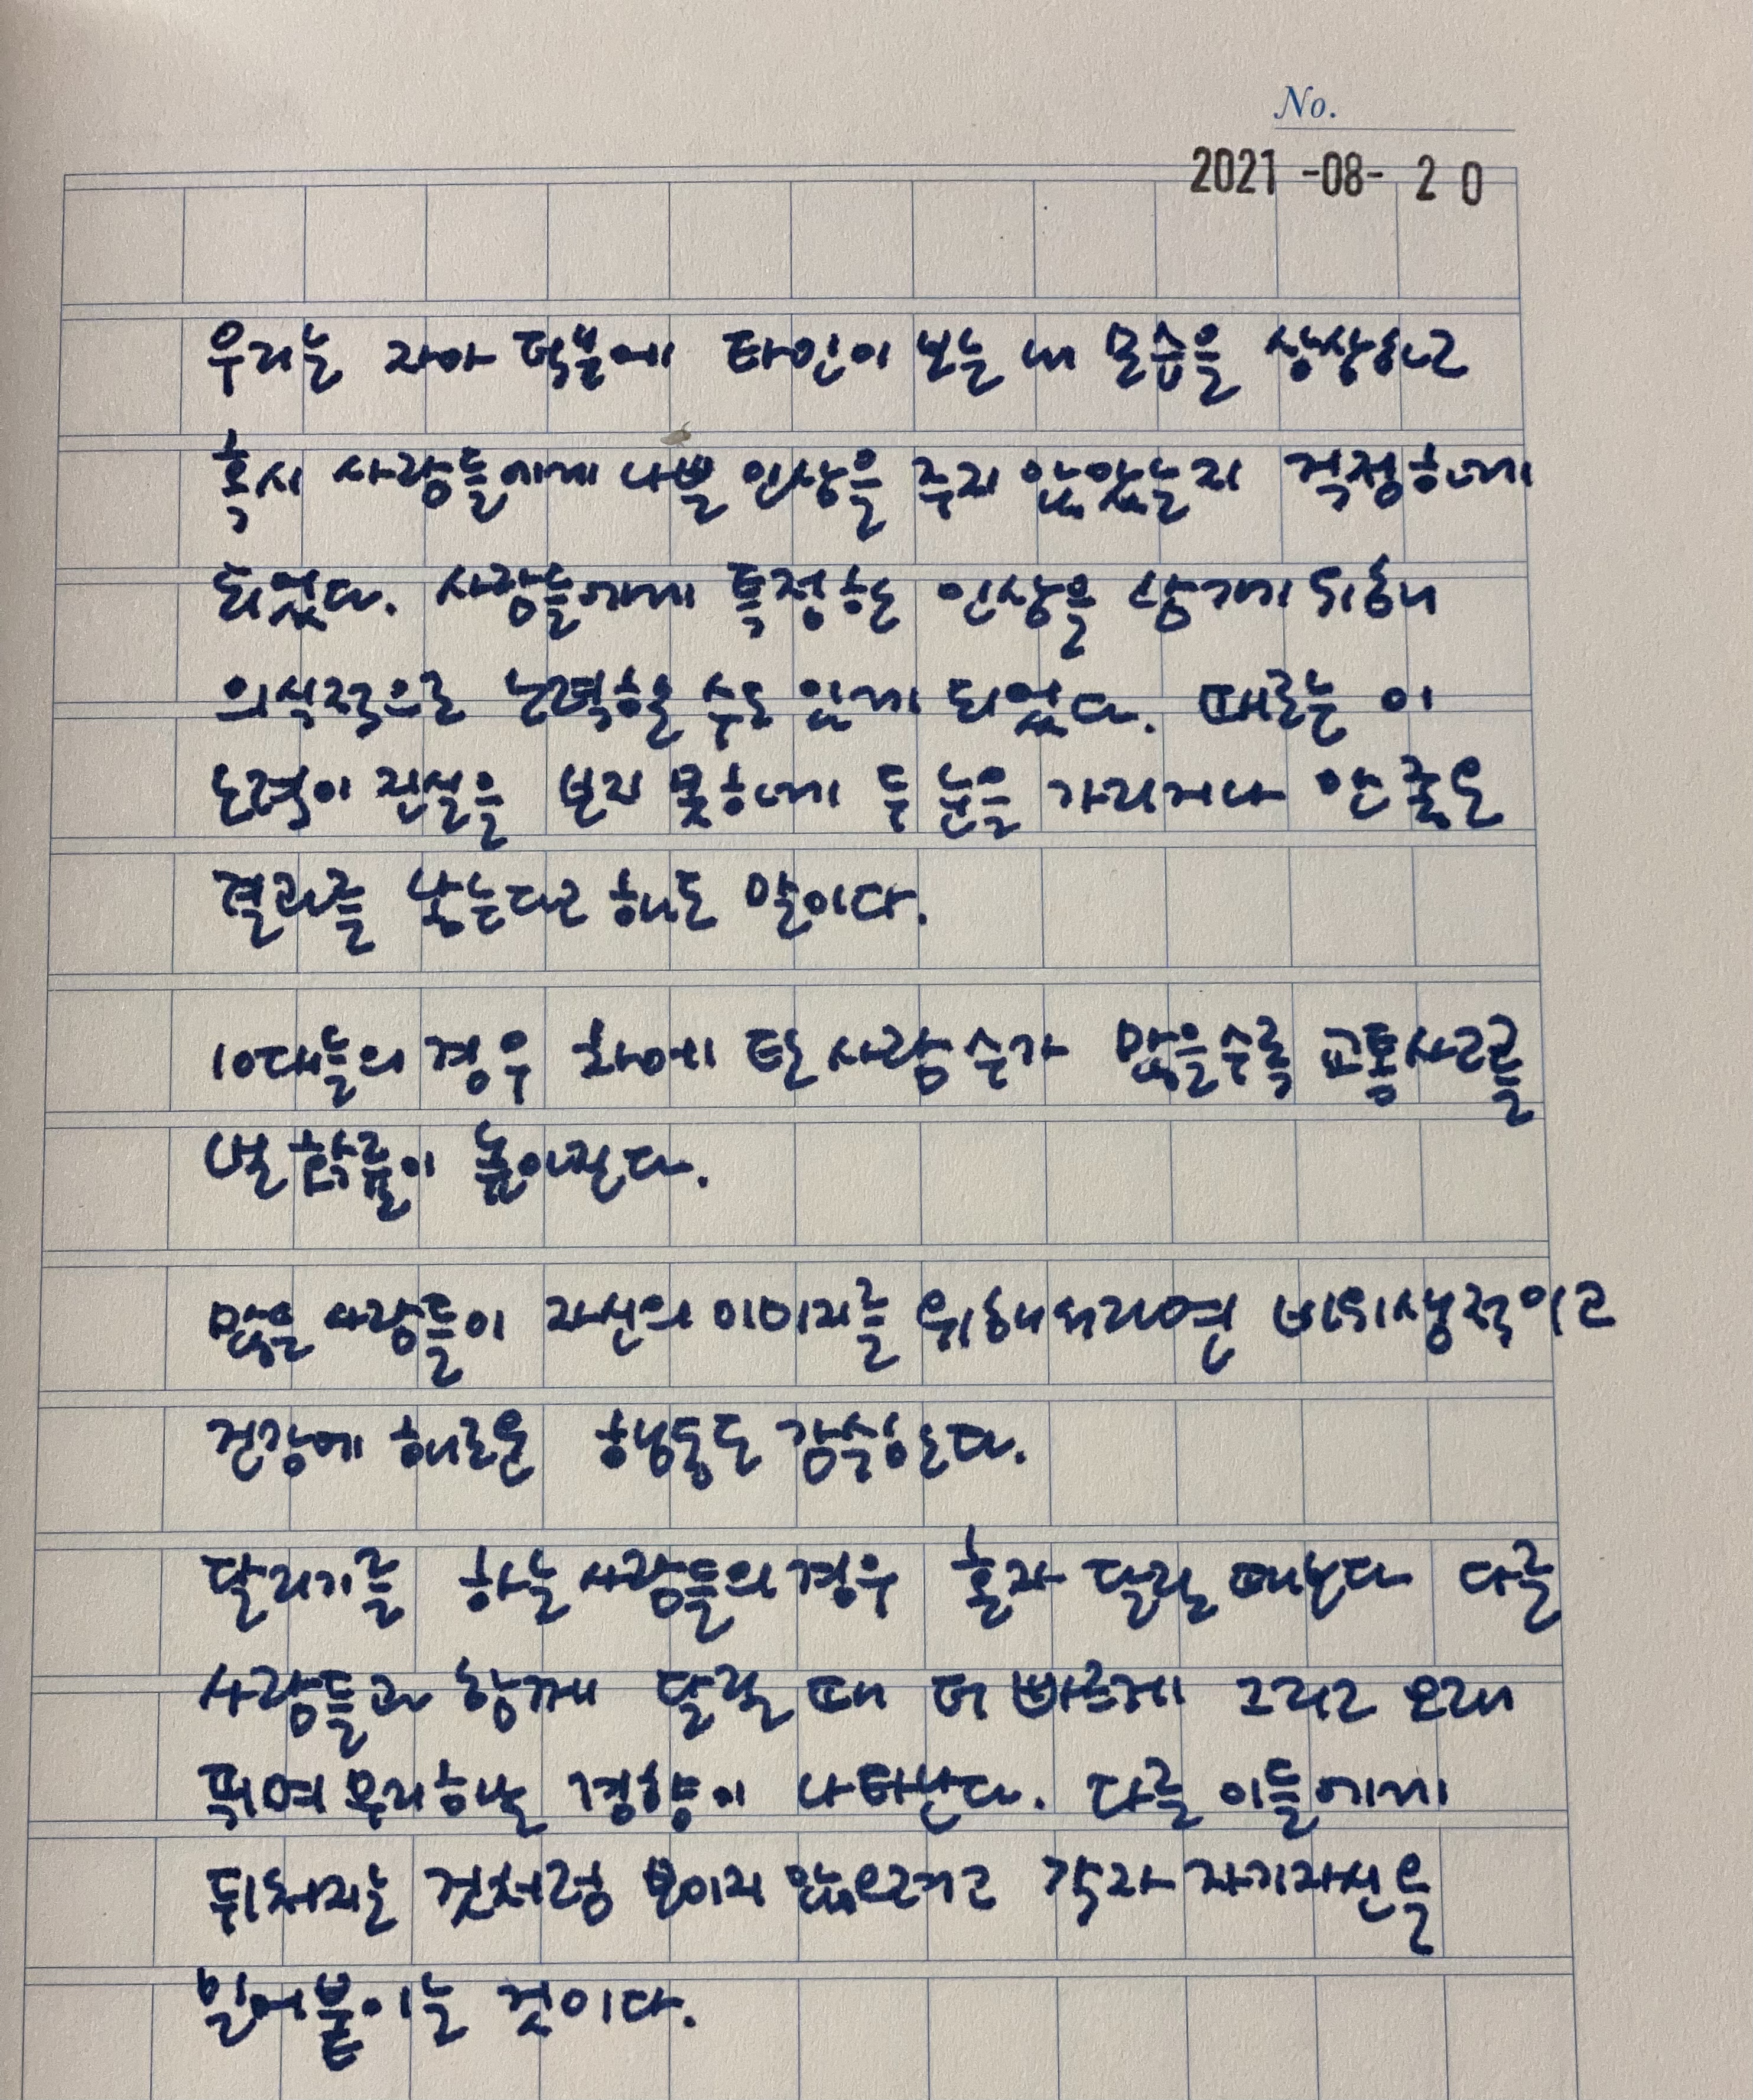 No.
2021 -08- 20
우리는 자아 덕분에 타인이 보는 내 모습을 상상하고
혹시 사람들에게 나쁜 인상을 주지 않았는지 걱정하게
되었다. 사람들에게 특정한 인상을 남기기 위해
의식적으로 노력할 수도 있게 되었다. 때로는 이
노력이 진실을 보지 못하게 두 눈을 가리거나 안 좋은
결과를 낳는다고 해도 말이다.
10대들의 경우 차에 탄 사람 수가 많을수록 교통사고를
낼 확률이 높아진다.
많은 사람들이 자신의 이미지를 위해서라면 비위생적이고
건강에 해로운 행동도 감수한다.
달리기를 하는 사람들의 경우 혼자 달릴 때보다 다른
사람들과 함께 달릴 때 더 빠르게 그리고 오래
뛰며 무리하는 경향이 나타난다. 다른 이들에게
뒤처지는 것처럼 보이지 않으려고 각자 자기자신을
밀어붙이는 것이다.